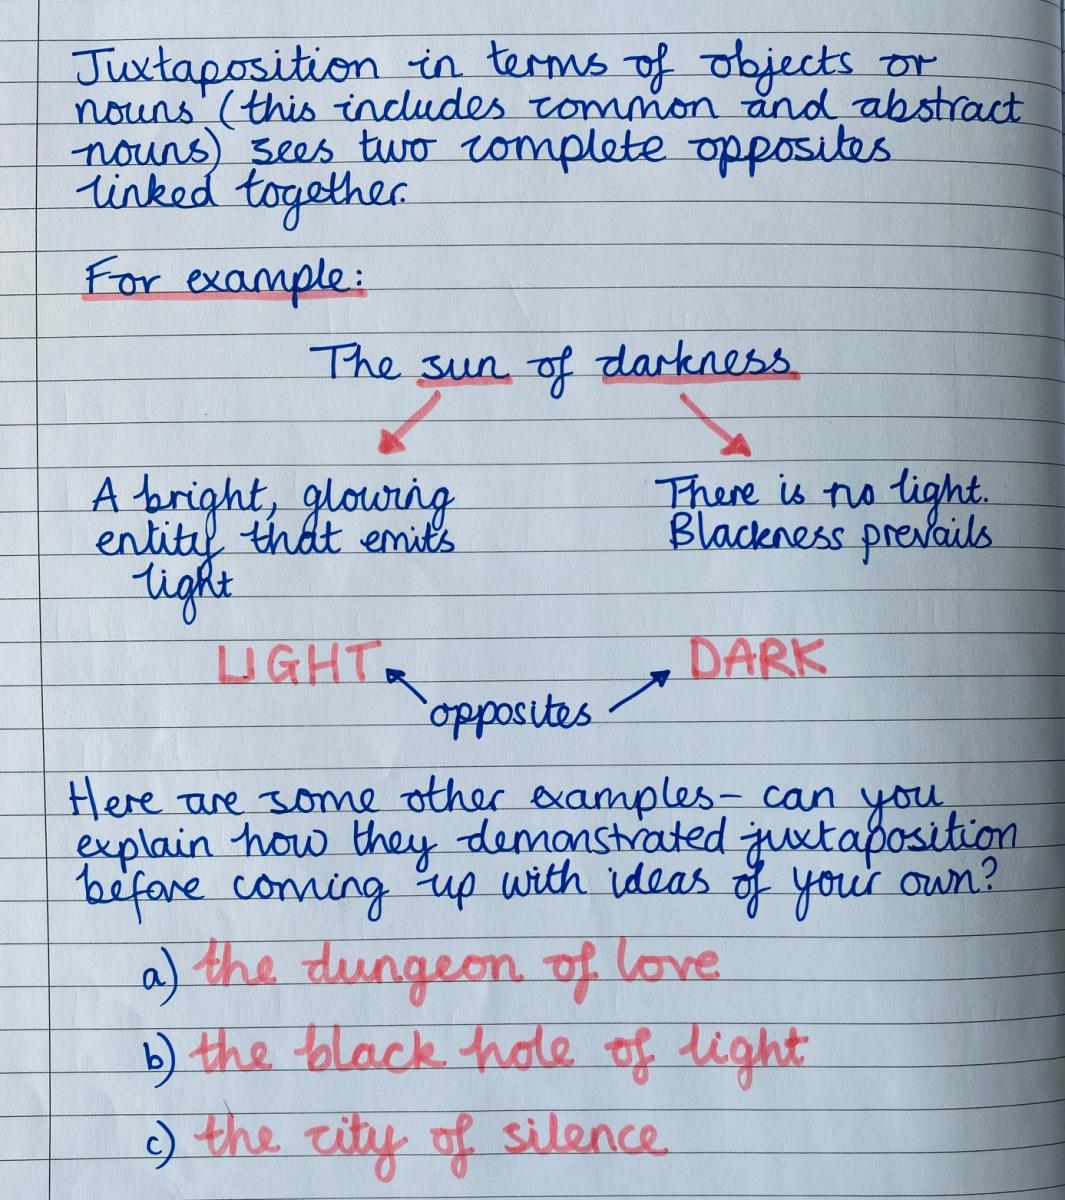 Juxtaposition in terms of objects or
nouns (this includes common and abstract
nouns) sees two complete opposites
linked together.
For example:
The sun of darkness
A bright, glowing
entity that emits
light
There is no light.
Blackness prevails
LIGHT
DARK
opposites
Here are some other examples- can you
explain how they demonstrated juxtaposition
before coming up with ideas of your own?
a) the dungeon of love
b) the black hole of light
c) the city of silence